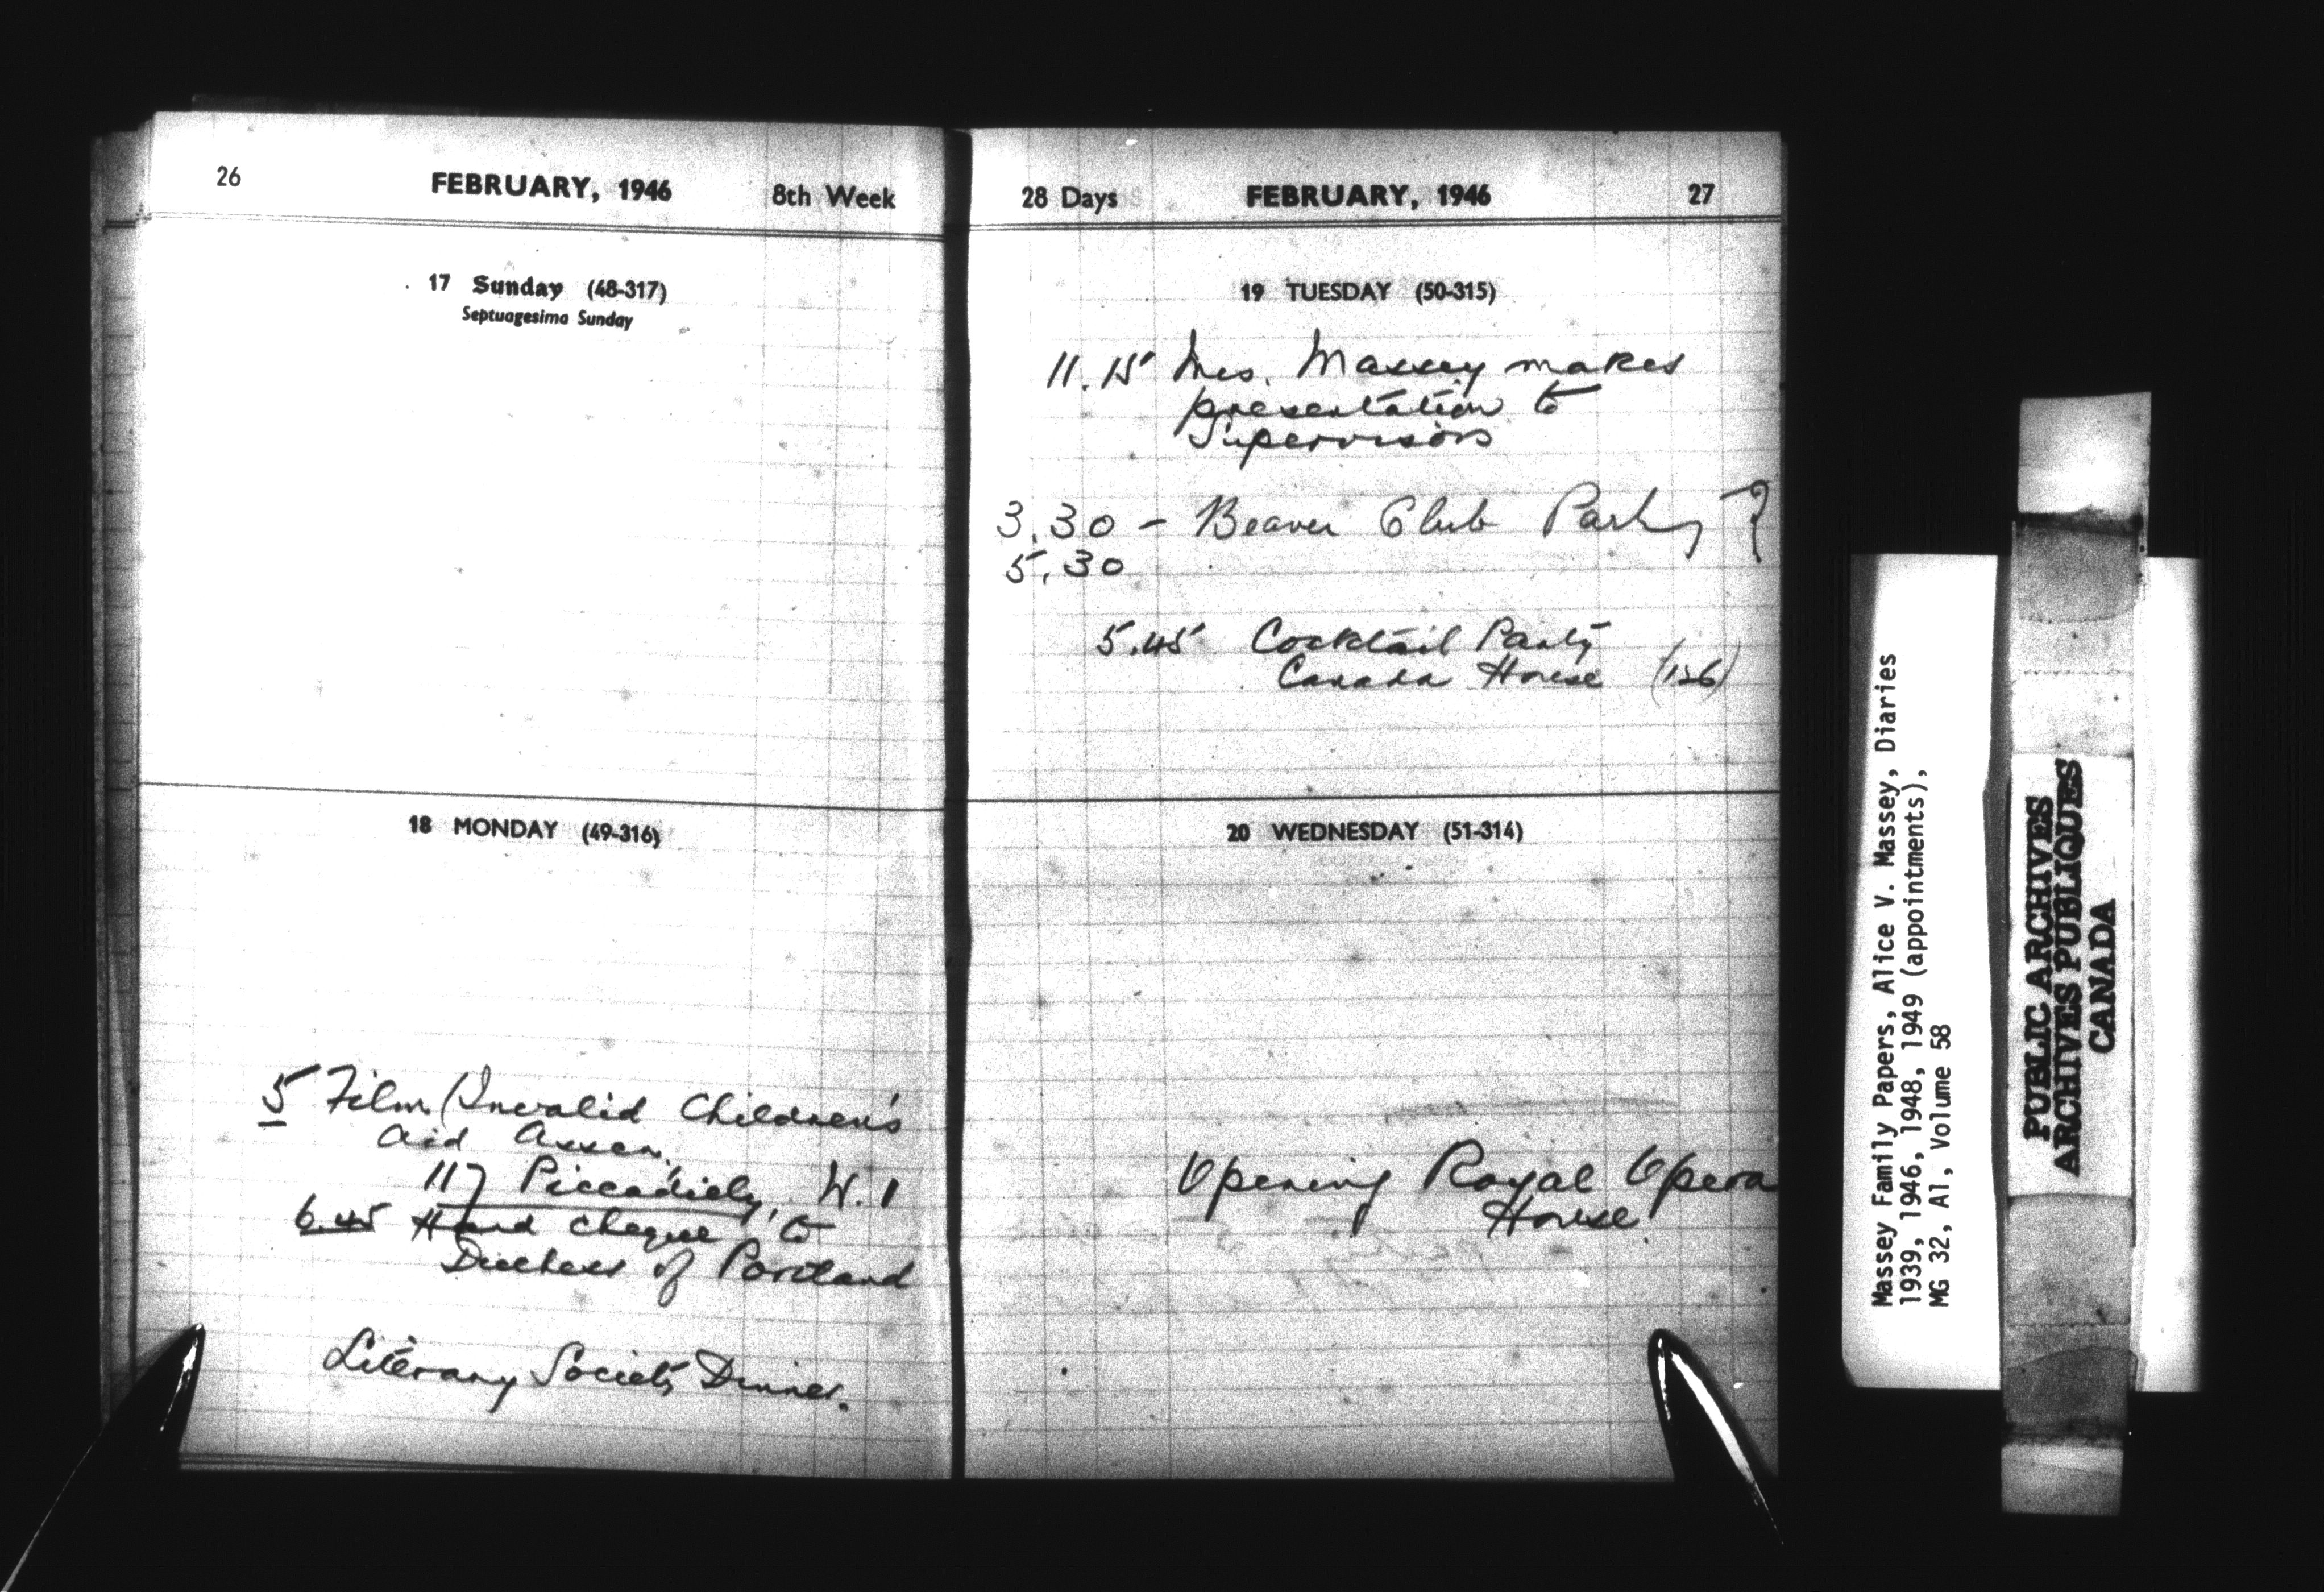 26 FEBRUARY, 1946 8th Week
17 Sunday (48-317)
Septuagesima Sunday
18 MONDAY (49-316)
5 Film (Invalid Children's
Aid Asscn.
117 Piccadilly, W.1
6.45 Hand cheque to
Duchess of Portland
Literary Society Dinner.
28 Days FEBRUARY, 1946 27
19 TUESDAY (50-315)
11.15 Mrs. Massey makes
presentation to
Supervisors
3.30 - Beaver Club Party ?
5.30
5.45 Cocktail Party
Canada House (126)
20 WEDNESDAY (51-314)
Opening Royal Opera
House
Massey Family Papers, Alice V. Massey, Diaries
1939, 1946, 1948, 1949 (appointments),
MG 32, A1, Volume 58
PUBLIC ARCHIVES
ARCHIVES PUBLIQUES
CANADA